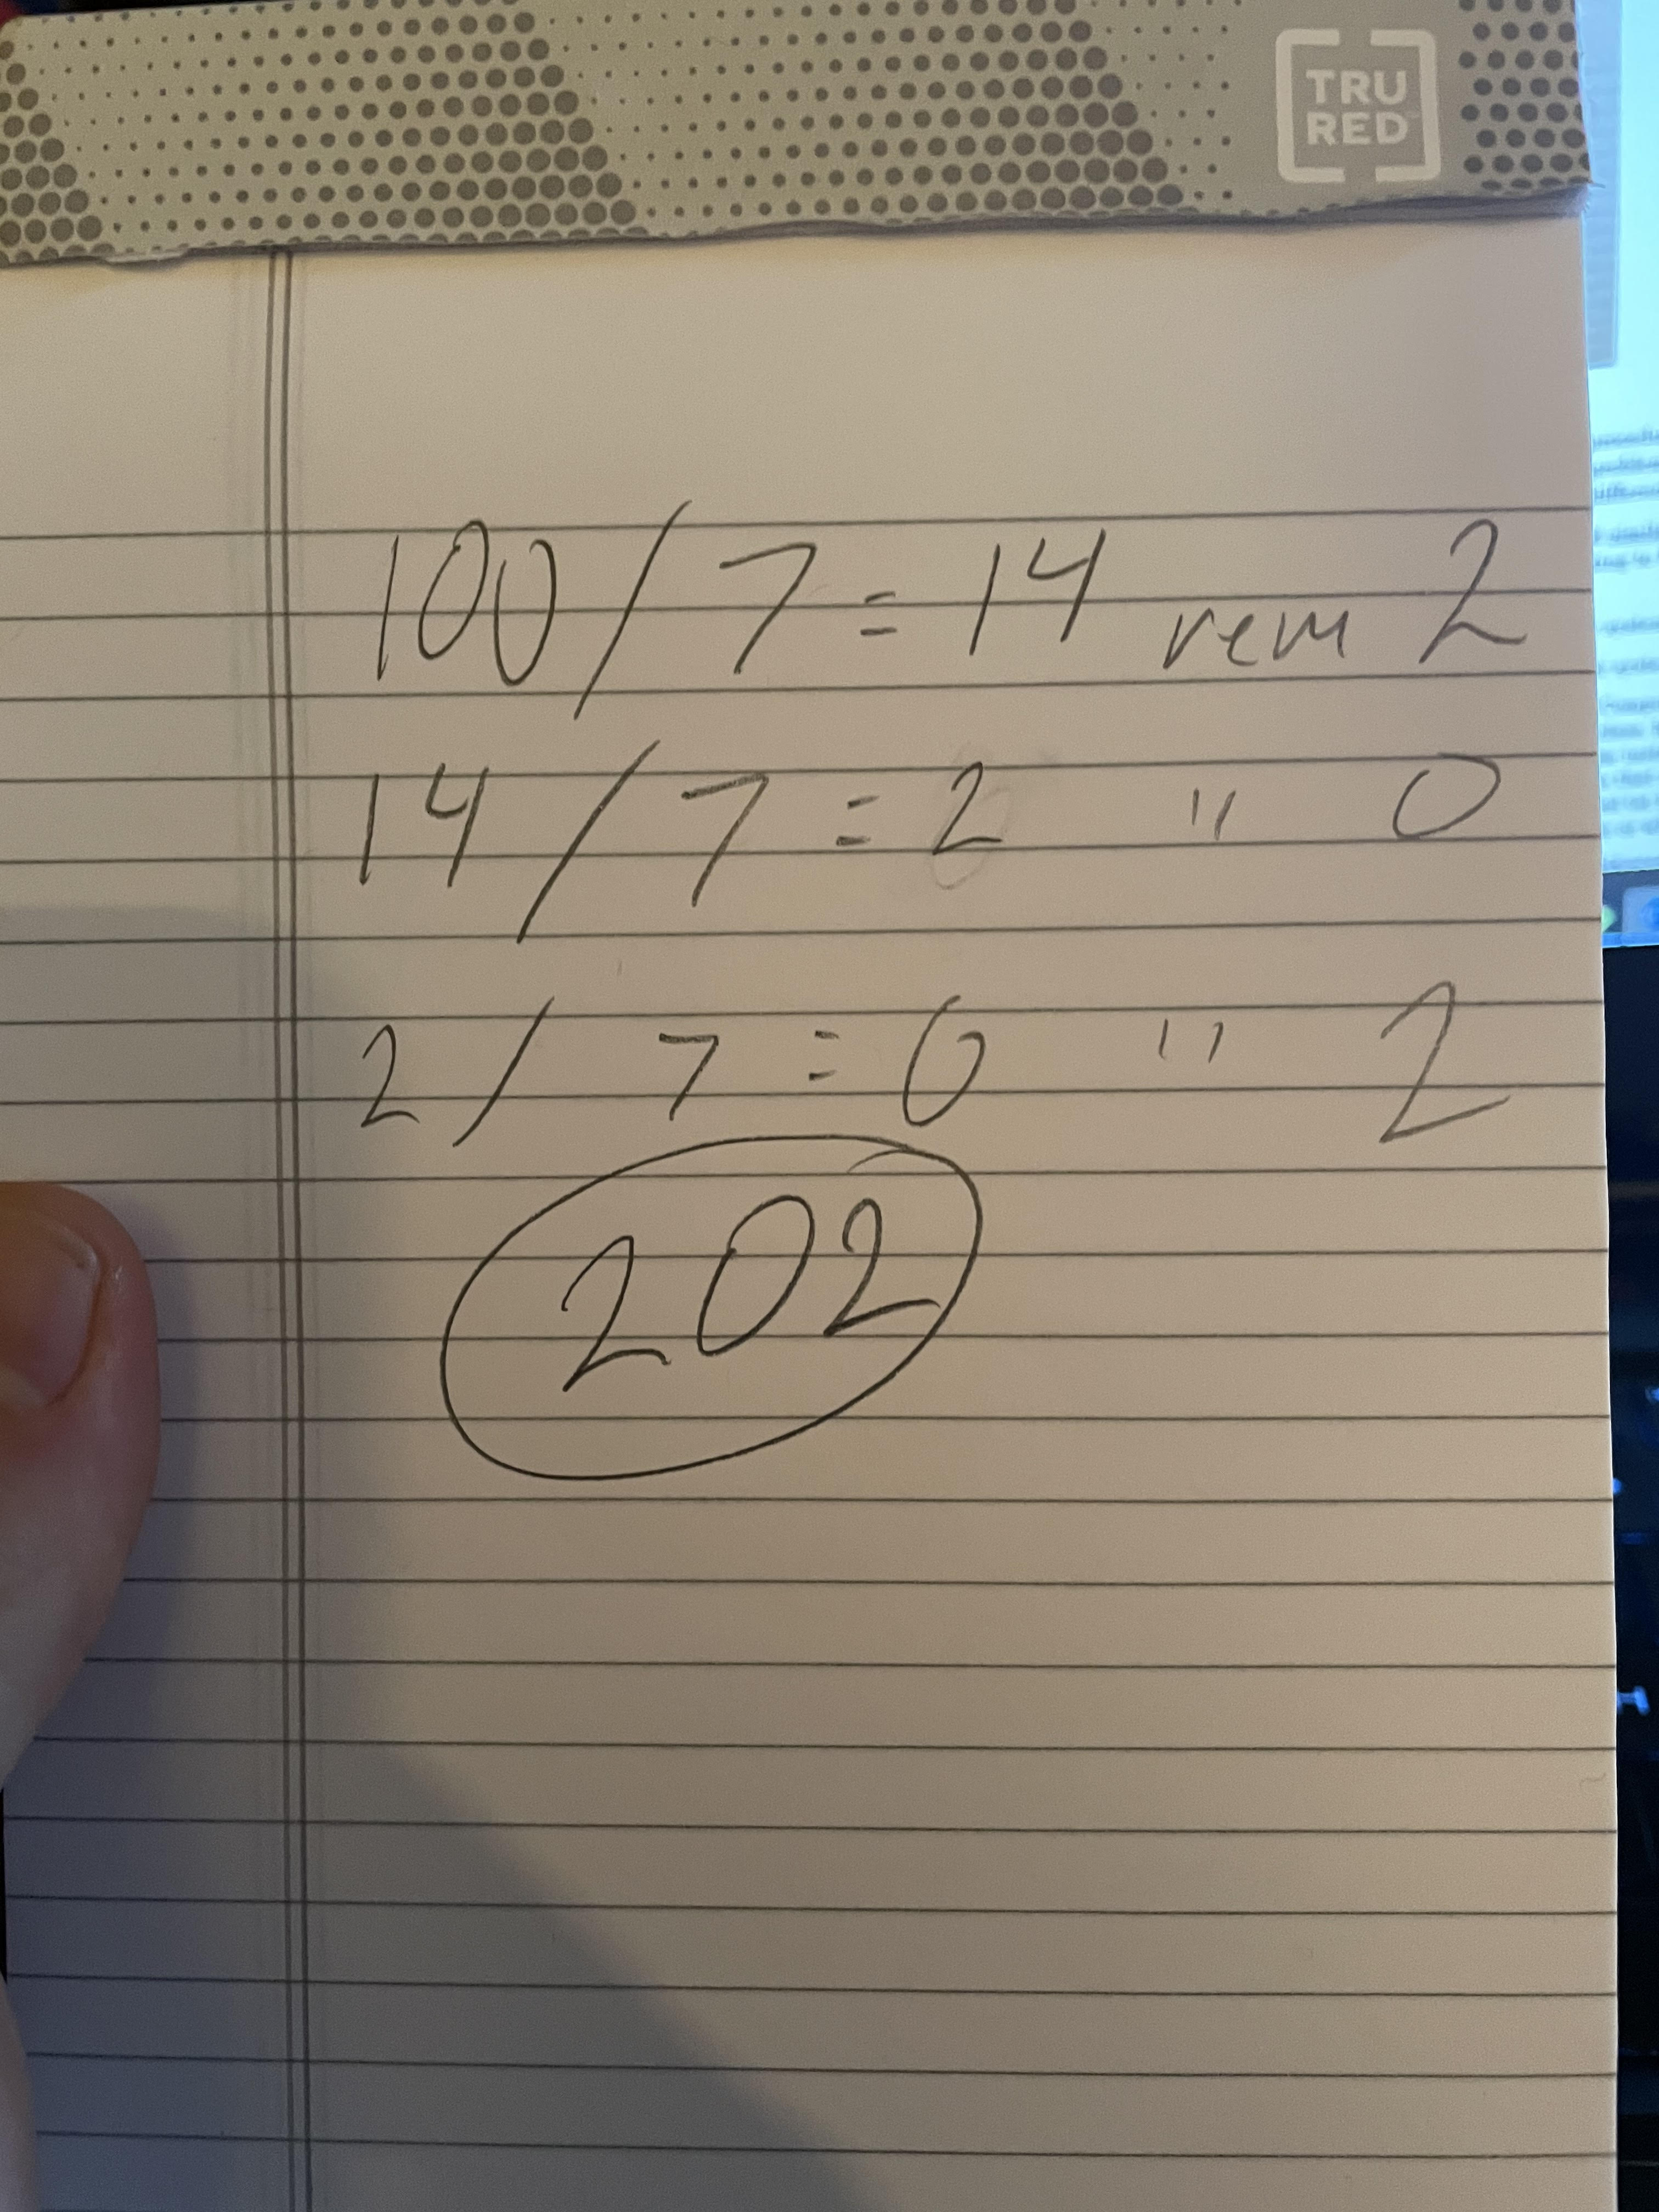 TRU
RED
100/7=14 rem 2
14/7=2 " 0
2/7=0 " 2
202